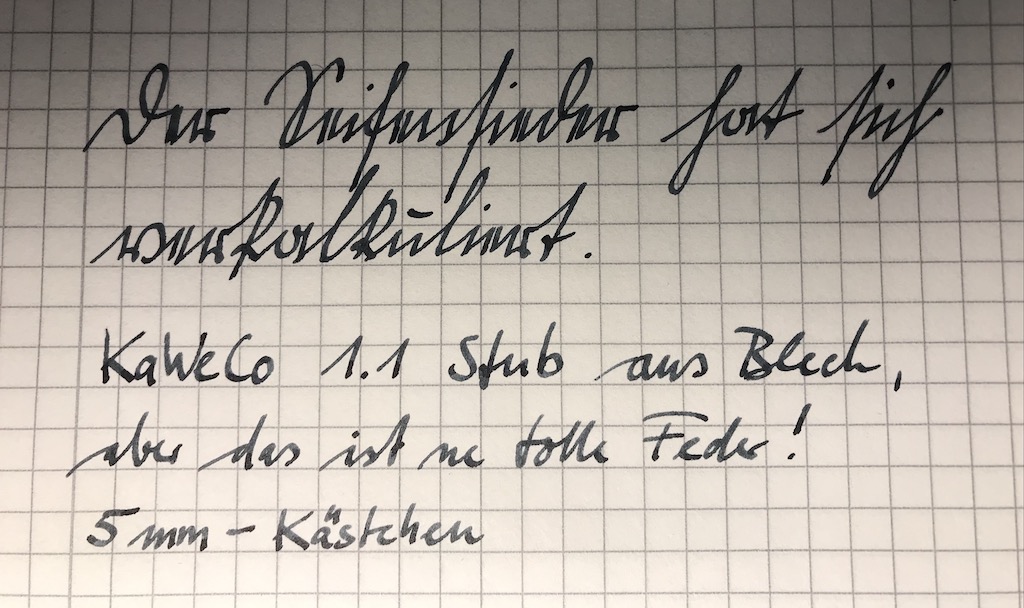 Der Seifensieder hat sich
verkalkuliert.
KaWeCo 1.1 Stub aus Blech,
aber das ist ne tolle Feder!
5mm - Kästchen